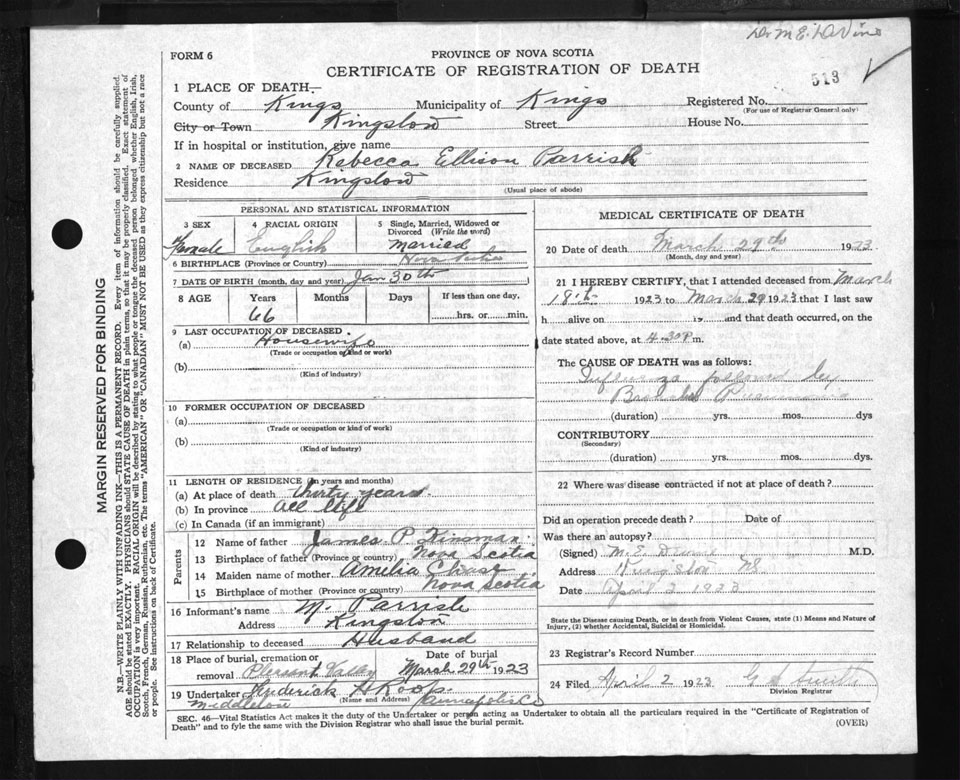 Dr M E
513
FORM 6
PROVINCE OF NOVA SCOTIA
CERTIFICATE OF REGISTRATION OF DEATH
1 PLACE OF DEATH—
County of Kings Municipality of Kings Registered No.
(For use of Registrar General only)
City or Town Kingston Street House No.
If in hospital or institution, give name
2 NAME OF DECEASED Rebecca Ellison Parrish
Residence Kingston
(Usual place of abode)
MARGIN RESERVED FOR BINDING
N.B.—WRITE PLAINLY WITH UNFADING INK—THIS IS A PERMANENT RECORD. Every item of information should be carefully supplied.
AGE should be stated EXACTLY. PHYSICIANS should STATE CAUSE OF DEATH in plain terms, so that it may be properly classified. Exact statement of
OCCUPATION is very important. RACIAL ORIGIN will be described by stating to what people or tongue the deceased person belonged whether English, Irish,
Scotch, French, German, Russian, Ruthenian, etc. The terms "AMERICAN" OR "CANADIAN" MUST NOT BE USED as they express citizenship but not a race
or people. See instructions on back of Certificate.
PERSONAL AND STATISTICAL INFORMATION
3 SEX 4 RACIAL ORIGIN 5 Single, Married, Widowed or
Divorced (Write the word)
Female English Married
6 BIRTHPLACE (Province or Country) Nova Scotia
7 DATE OF BIRTH (month, day and year) Jan 30th
8 AGE Years Months Days If less than one day,
66 hrs. or min.
9 LAST OCCUPATION OF DECEASED
(a) Housewife
(Trade or occupation or kind or work)
(b)
(Kind of industry)
10 FORMER OCCUPATION OF DECEASED
(a)
(Trade or occupation or kind of work)
(b)
(Kind of industry)
11 LENGTH OF RESIDENCE (In years and months)
(a) At place of death thirty years
(b) In province all life
(c) In Canada (if an immigrant)
Parents
12 Name of father James P Kinsman
13 Birthplace of father (Province or country) Nova Scotia
14 Maiden name of mother Amelia Chase
15 Birthplace of mother (Province or country) Nova Scotia
16 Informant's name M. Parrish
Address Kingston
17 Relationship to deceased Husband
18 Place of burial, cremation or Date of burial
removal Pleasant Valley March 29th 1923
19 Undertaker H Roop
(Name and Address)
Middleton Annapolis Co
MEDICAL CERTIFICATE OF DEATH
20 Date of death March 29th 1923
(Month, day and year)
21 I HEREBY CERTIFY, that I attended deceased from March
18th 1923 to March 29 1923 that I last saw
h alive on 19 and that death occurred, on
date stated above, at 4.30 P m.
The CAUSE OF DEATH was as follows:
Influenza followed by
Bronchial Pneumonia
(duration) yrs. mos. dys
CONTRIBUTORY
(Secondary)
(duration) yrs. mos. dys.
22 Where was disease contracted if not at place of death?
Did an operation precede death? Date of
Was there an autopsy?
(Signed) M. E. M.D.
Address Kingston NS
Date April 2 1923
State the Disease causing Death, or in death from Violent Causes, state (1) Means and Nature of
Injury, (2) whether Accidental, Suicidal or Homicidal.
23 Registrar's Record Number
24 Filed April 2 1923 G
Division Registrar
SEC. 46—Vital Statistics Act makes it the duty of the Undertaker or person acting as Undertaker to obtain all the particulars required in the "Certificate of Registration of
Death" and to fyle the same with the Division Registrar who shall issue the burial permit.
(OVER)